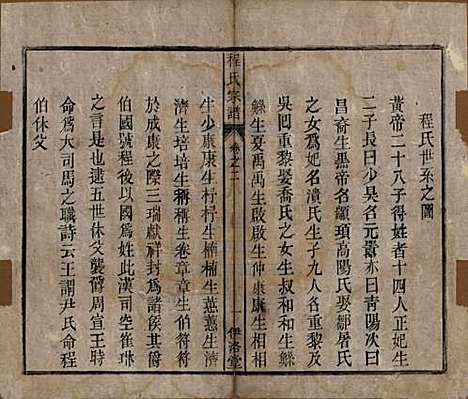 程氏世系之圖
黃帝二十八子得姓者十四人正妃生
二子長曰少昊名元囂亦曰青陽次曰
昌裔生黑帝名顓頊高陽氏娶鄒屠氏
之女爲妃名潰氏生子九人各重黎及
吳回重黎娶喬氏之女生叔和生鯀
鯀生夏禹禹生啟啟生仲康康生相相
程氏家譜
卷之二
一
伊洛堂
生少康康生杼杼生楠楠生蕙蕙生濟
濟生培培生稱稱生卷章章生伯符符
於成康之際三瑞獻祥封爲諸侯其爵
伯國號程後以國爲姓此漢司空崔琳
之言是也逮五世休父襲爵周宣王時
命爲大司馬之職詩云王謂尹氏命程
伯休父